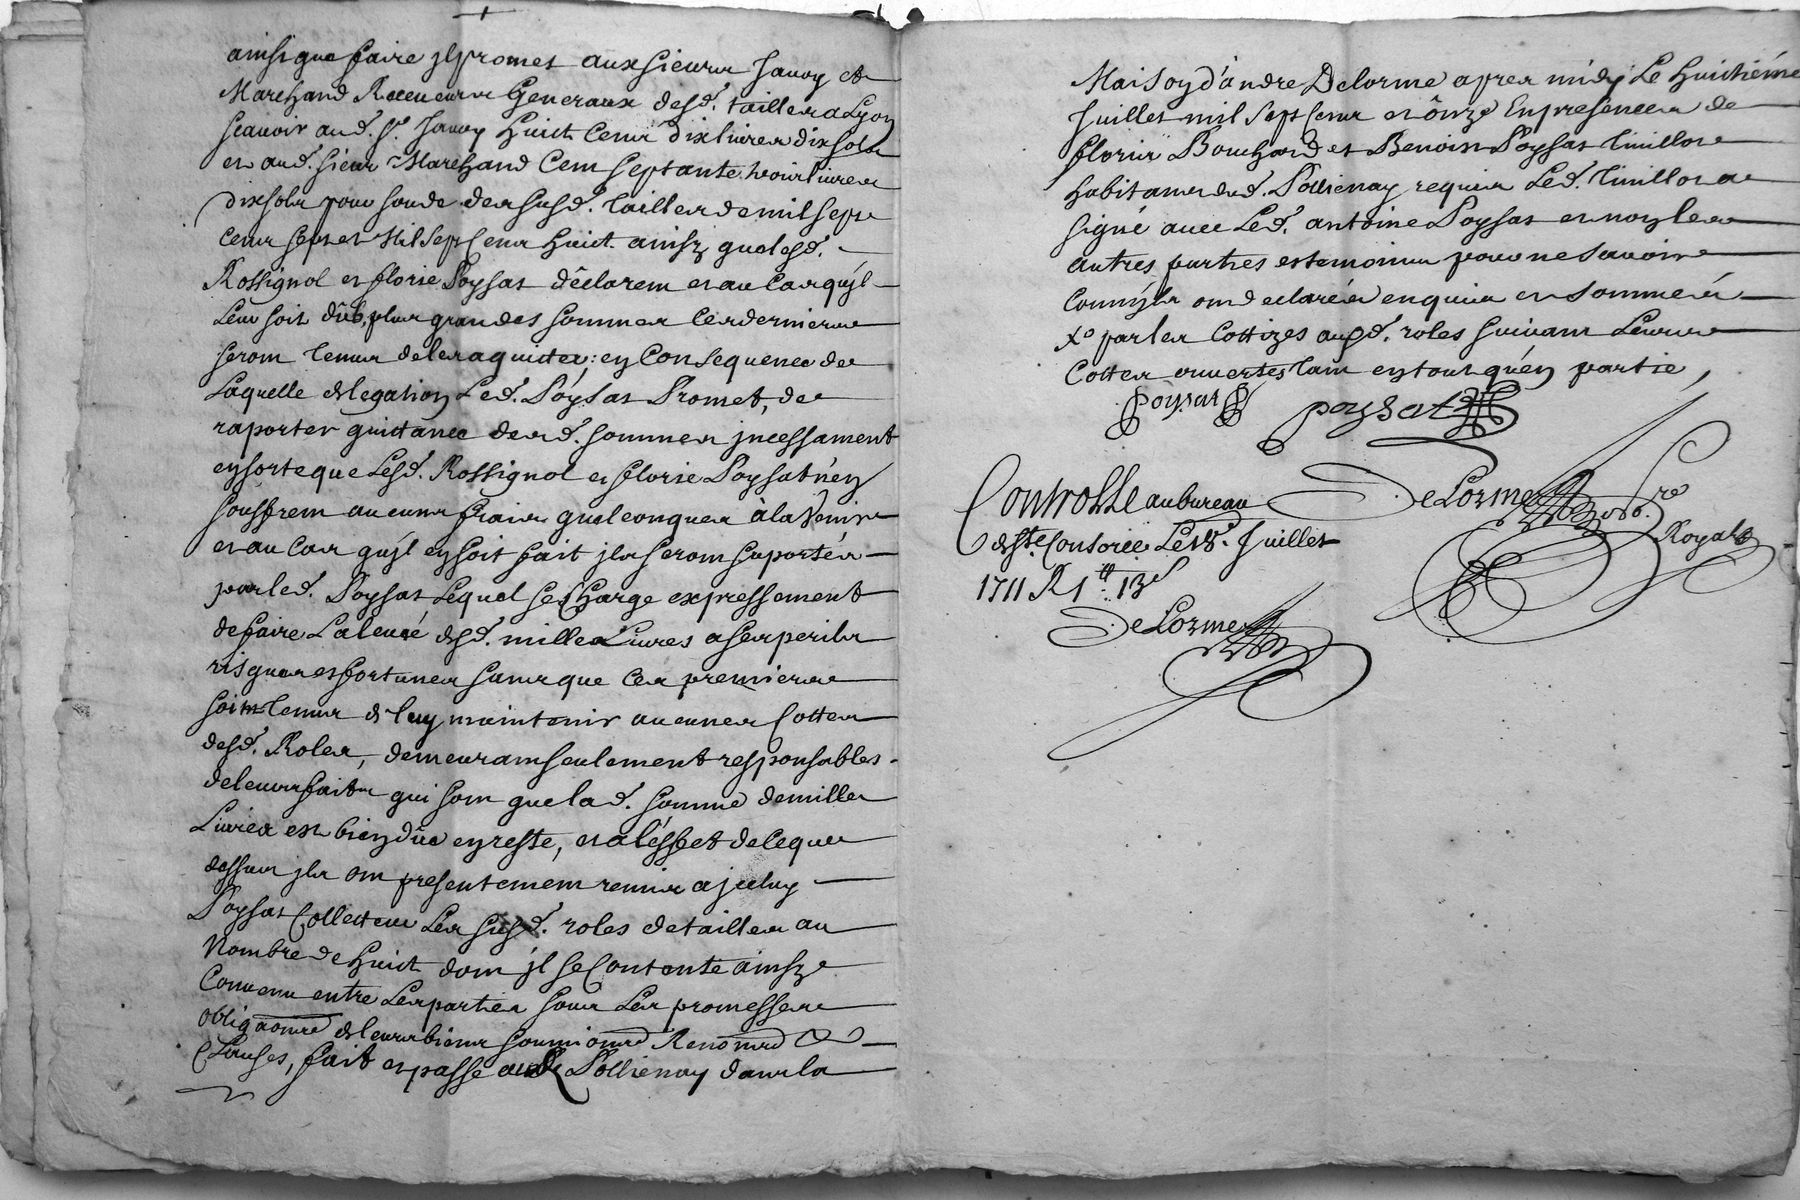 ainsi que faire jl promet aux sieurs Jauoy et
Marchand Receueurs Generaux desd. tailles a Lyon
scauoir aud. sr. Jauoy huict cens dix liures dix sols
et aud. sieur Marchand cent septante trois liures
dix sols pour soude des susd. tailles de mil sept
cens sept et Mil sept cens huict. ainsy que lesd.
Rossignol et florie Poysat dêclarent et au cas qu'jl
Leur soit dûb, plus grandes sommes ces derniers
seront tenus de les aquitter; en Consequence de
Laquelle delegation Led. Poysat Promet, de
raporter quictance desd. sommes jncessament
en sorte que Lesd. Rossignol et florie Poysat n'en
souffrent aucuns fraix quelconques à la Venir
et au cas qu'jl en soit fait jls seront suportés
par led. Poysat Lequel se Charge expressement
de faire La leueé desd. milles Liures a ses perils
risques et fortunes sans que ces premiers
soint tenus de luy maintenir aucunes Cottes
desd. Roles, demeurant seulement responsables
de leurs faits qui sont que lad. somme de milles
Liures est bien dûe en reste, et a l'esfet de ce que
dessus jls ont presentement remis a jceluy
Poysat Collecteur Les susd. roles de tailles au
Nombre de huict dont jl se Contente ainsy
Conuenu entre Les parties sous Les promesses
obligaons de leurs biens soumions Renons &
Clauses, fait et passé aud. Pollienay dans la
Maison d'andre Delorme apres midy Le huictiéme
Juillet mil sept cens et ônze En presences de
florir Bouchard et Benoist Poysat tinillot
habitans dud. Pollienay requis Led. tinillot a
signé auec Led. antoine Poysat et non les
autres parties et temoins pour ne sauoir
Comm'jls ont declarés enquis et sommés
Xo par les Cottizes ausd. roles suiuant Leurs
Cottes ouuertes tant en tout qu'en partie,
Poysat poysat
Controllé au bureau
de ste Consorce Le 18e. Juillet
1711 R 1tt. 13s
DeLorme
DeLorme nore
Royal